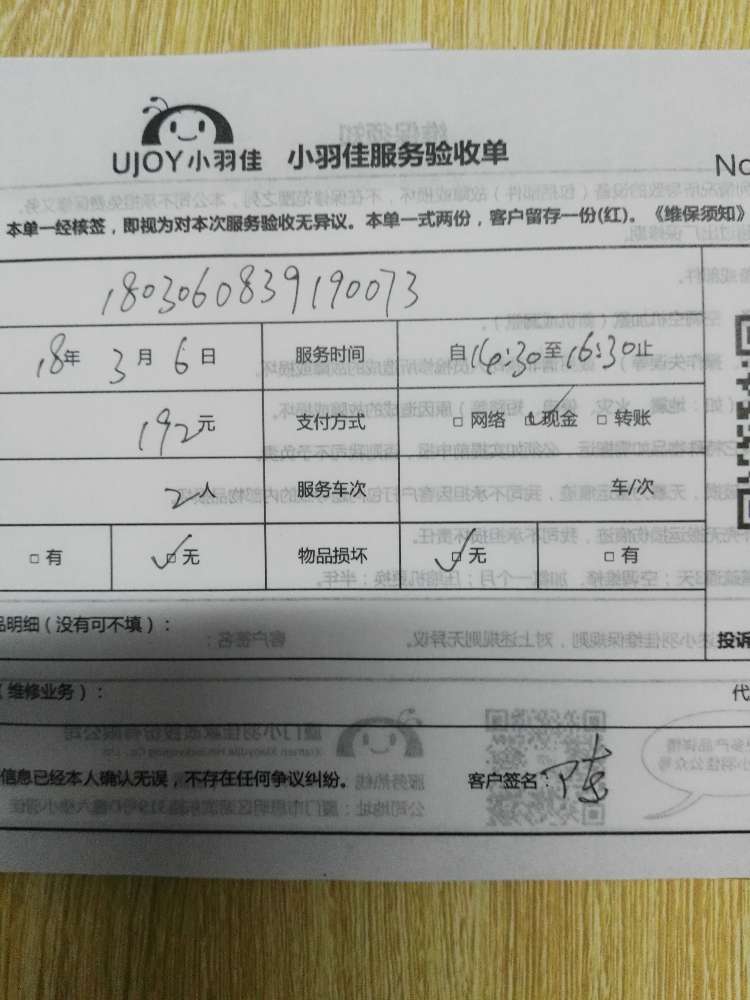 UJOY小羽佳 小羽佳服务验收单
No
本单一经核签，即视为对本次服务验收无异议。本单一式两份，客户留存一份(红)。《维保须知》
1803060839190073
18年 3月 6日 服务时间 自14:30至16:30止
192元 支付方式 □ 网络 ☑现金 □ 转账
2人 服务车次 车/次
□ 有 ☑无 物品损坏 ☑无 □ 有
品明细（没有可不填）：
投诉
（维修业务）：
代
信息已经本人确认无误，不存在任何争议纠纷。 客户签名：陈